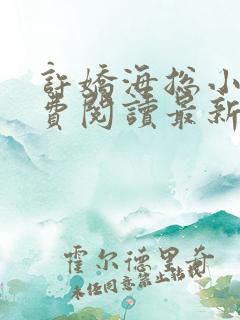 許嬌海撈小
費閱讀最新
霍尔德里奇
未经同意禁止转载